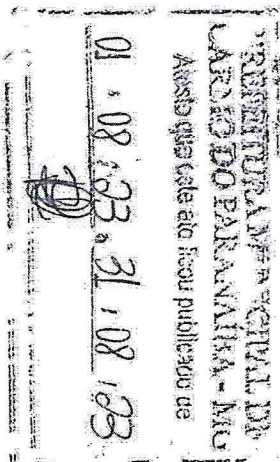 PREFEITURA MUNICIPAL DE
CARMO DO PARANAÍBA - MG
Atesto que este ato ficou publicado de
01 / 08 / 23 a 31 / 08 / 23